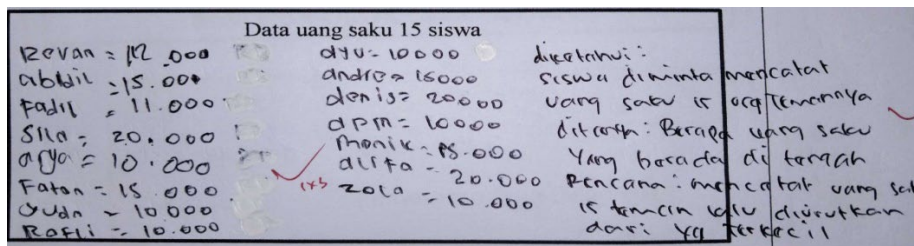 Data uang saku 15 siswa
Revan = 12.000
abdil = 15.000
Fadil = 11.000
Sila = 20.000
arya = 10.000
Faton = 15.000
= 10.000
Rafli = 10.000
ayu = 10000
andre = 15000
denis = 20000
dpm = 10000
monik = 15.000
alita = 20.000
zola = 10.000
diketahui :
siswa diminta mencatat
uang saku 15 org temannya
ditanya : Berapa uang saku
Yang berada di tengah
Rencana : mencatat uang sa
15 temcin lalu diurutkan
dari yg terkecil